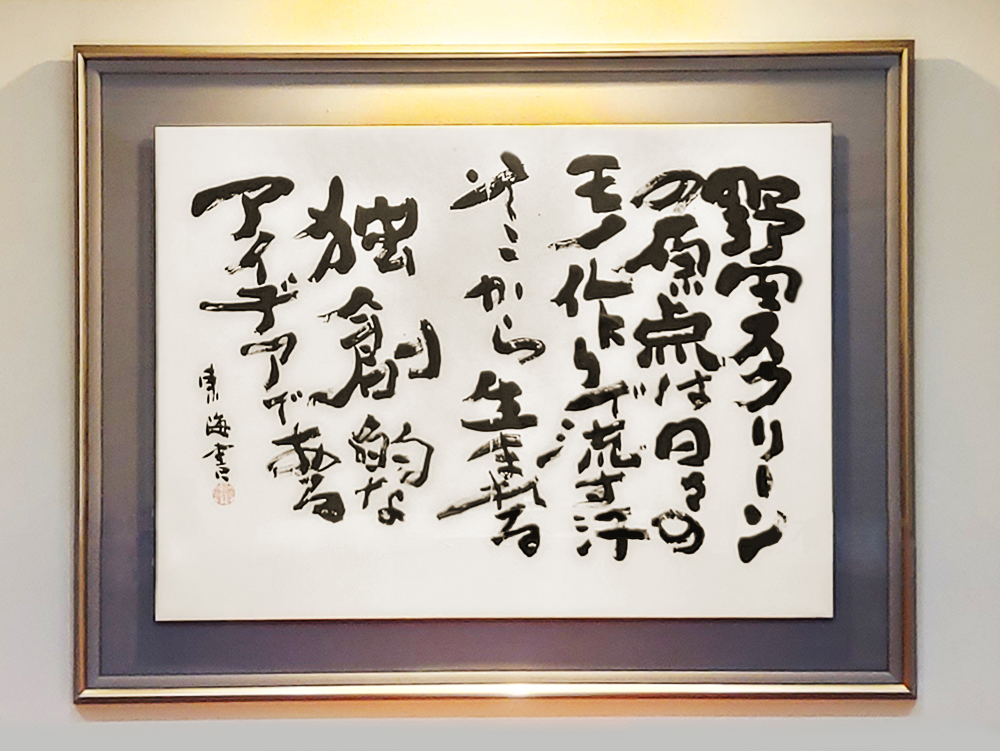 野田スクリーン
の原点は日々の
モノ作りで流す汗
そこから生まれる
独創的な
アイデアである
東海書